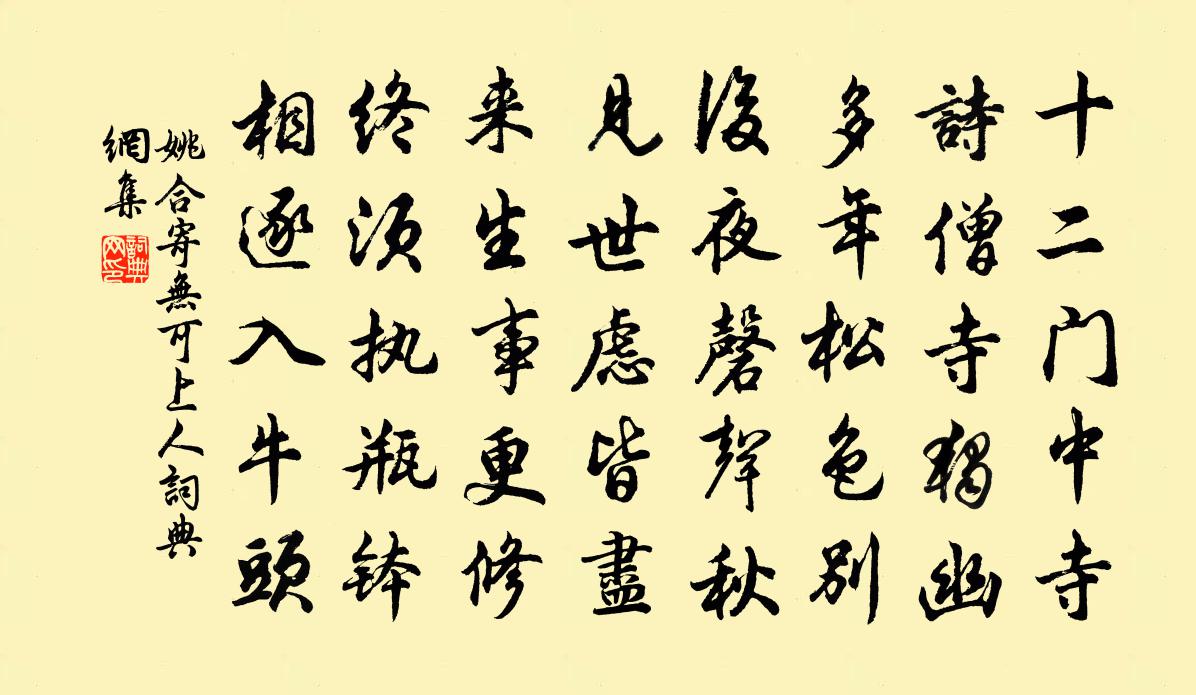 十二门中寺
詩僧寺獨幽
多年松色別
後夜磬聲秋
見世慮皆盡
来生事更修
终须执瓶钵
相逐入牛頭
姚合寄無可上人詞典
網集
詞典网印